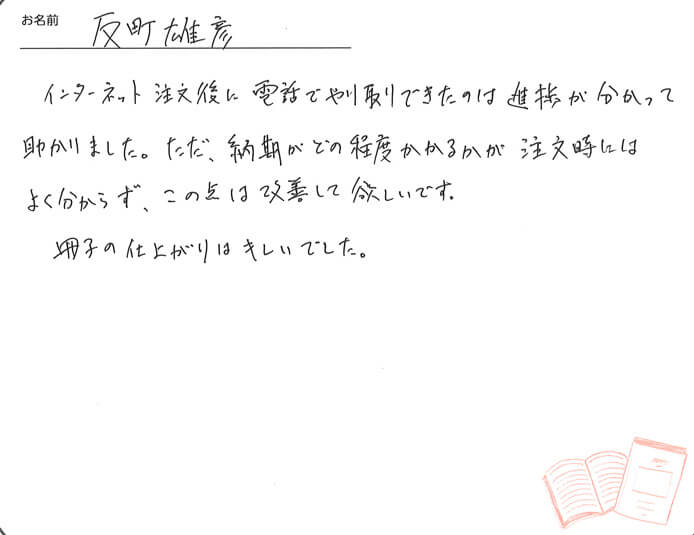 お名前 反町雄彦
インターネット注文後に電話でやり取りできたのは進捗が分かって
助かりました。ただ、納期がどの程度かかるかが注文時には
よく分からず、この点は改善して欲しいです。
冊子の仕上がりはキレいでした。